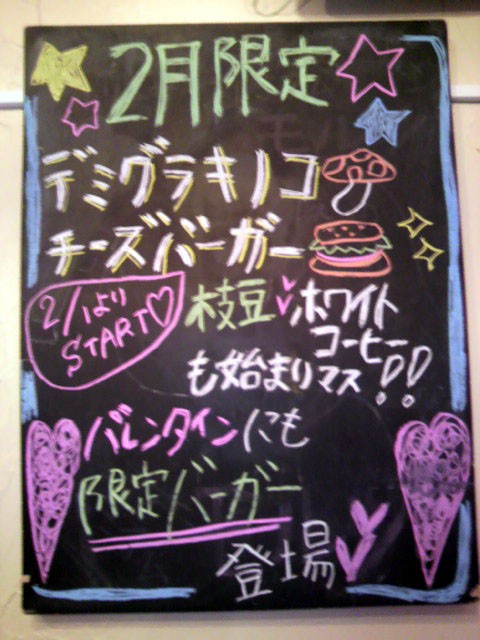 2月限定
デミグラキノコ
チーズバーガー
2/1より
START♡
枝豆♥ホワイト
コーヒー
も始まりマス!!
バレンタインにも
限定バーガー
登場